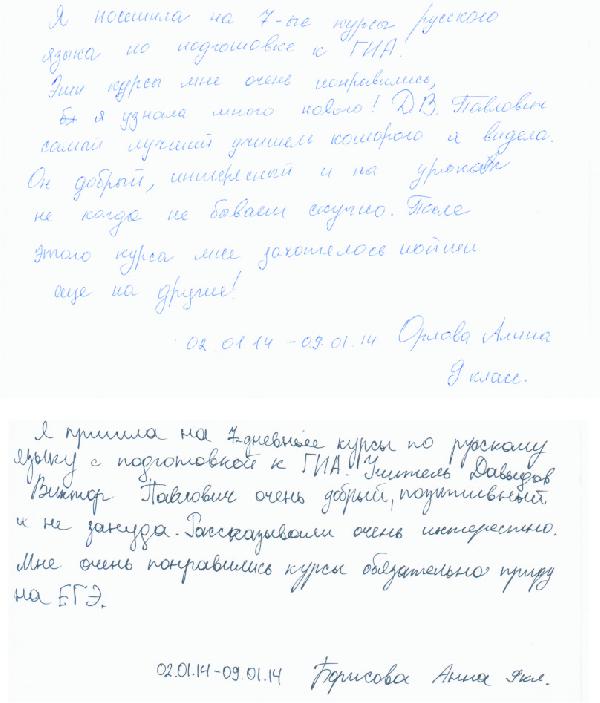 Я посещала на 7-ые курсы русского
языка по подготовке к ГИА!
Эти курсы мне очень понравились,
я узнала много нового! Д.В. Павлович
самый лучший учитель которого я видела.
Он добрый, интересный и на уроках
не когда не бывает скучно. После
этого курса мне захотелось пойти
еще на другие!
02.01.14-09.01.14 Орлова Алина
9 класс.
Я пришла на 7-дневные курсы по русскому
языку с подготовкой к ГИА! Учитель Давыдов
Виктор Павлович очень добрый, позитивный
и не зануда. Рассказывали очень интерестно.
Мне очень понравились курсы обязательно приду
на ЕГЭ.
02.01.14-09.01.14 Борисова Анна 9кл.